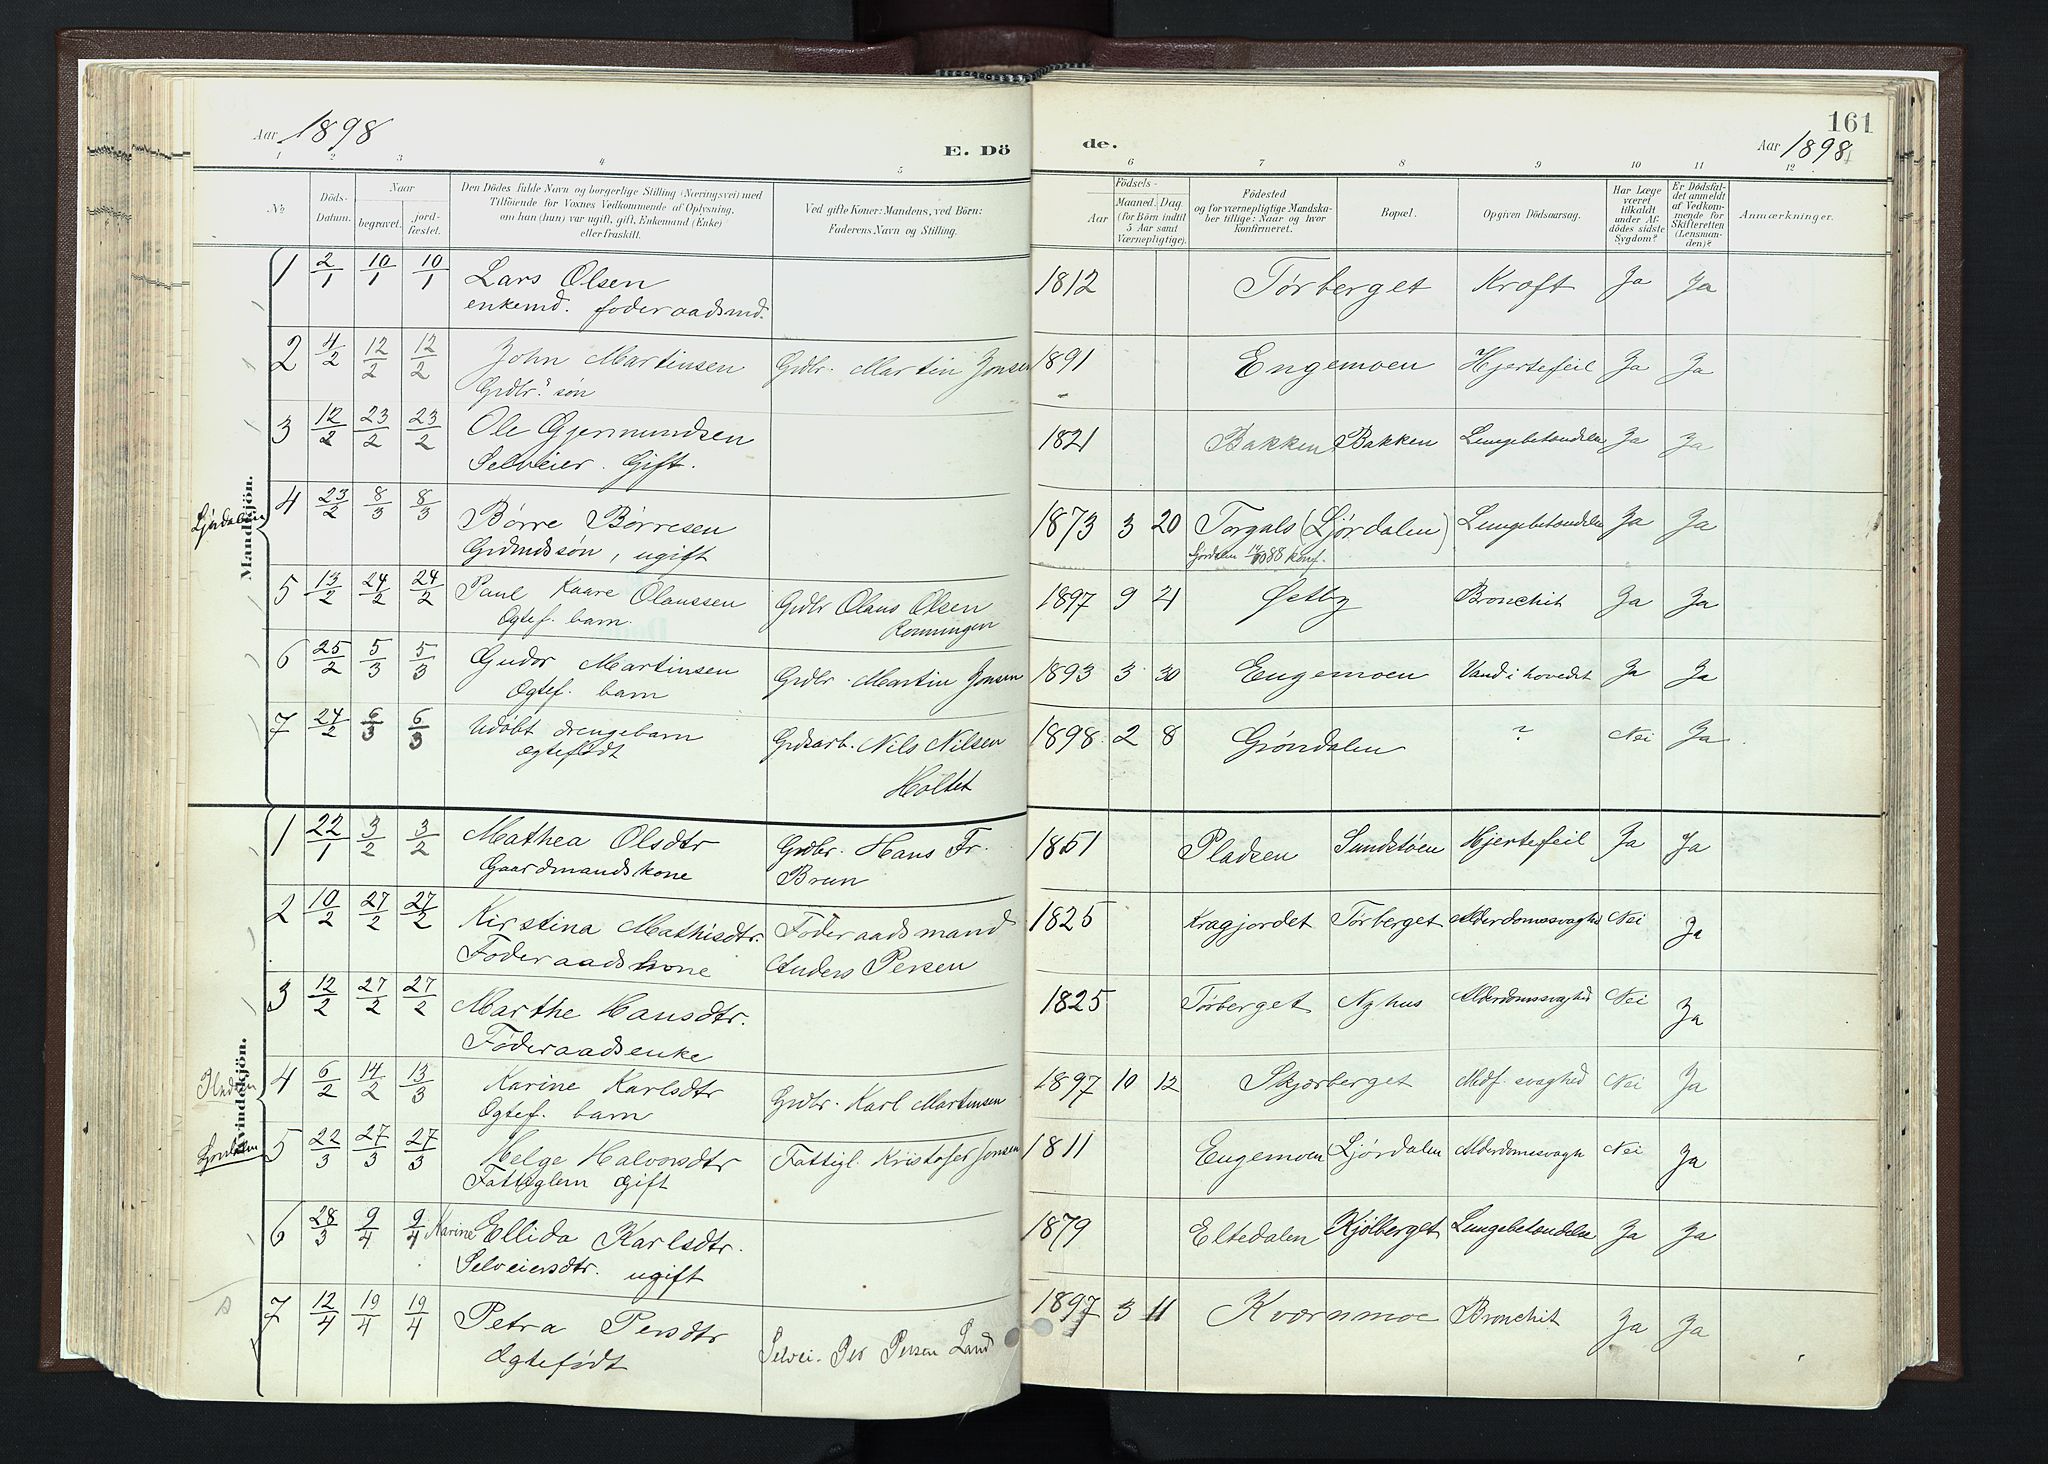 Aar 1898
E. Döde.
161
Aar 1898
1 2 3 4 5 6 7 8 9 10 11 12
No
Döds-Datum.
Naar
begravet.
jord-fæstet.
Den Dödes fulde Navn og borgerlige Stilling (Næringsvei) med
Tilføiende for Voxnes Vedkommende af Oplysning,
om han (hun) var ugift, gift, Enkemand (Enke)
eller fraskilt.
Ved gifte Koner: Mandens, ved Börn:
Faderens Navn og Stilling.
Fødsels-
Aar
Maaned. Dag.
(for Börn indtil
5 Aar samt
Værnepligtige).
Födested
og for værnepligtige Mandska-
ber tillige: Naar og hvor
Konfirmeret.
Bopæl.
Opgiven Dödsaarsag.
Har Læge
været
tilkaldt
under Af-
dödes sidste
Sygdom?
Er Dödsfal-
det anmeldt
af Vedkom-
mende for
Skifteretten
(Lensman-
den)?
Anmærkninger.
Mandkjön.
1 2/1 10/1 10/1 Lars Olsen 1812 Tørberget Kræft Ja Ja
enkemd. foderaadsmd.
2 4/2 12/2 12/2 John Martinsen Grdbr. Martin Jonsen 1891 Engemoen Hjertefeil Ja Ja
Grdbr. søn
3 12/2 23/2 23/2 Ole Gjermundsen 1821 Bakken Bakken Lungebetændelse Ja Ja
Selveier. Gift.
Ljørdalen 4 23/2 8/3 8/3 Børre Børresen 1873 3 20 Torgals (Ljørdalen) Lungebetændelse Ja Ja
Grdmdssøn, ugift
88 konf.
5 13/2 24/2 24/2 Paul Kaare Olaussen Grdbr Olaus Olsen 1897 9 21 Østby Bronchit Ja Ja
Ogtef. barn. Rønningen
6 25/2 5/3 5/3 Gudor Martinsen Grdbr. Martin Jonsen 1893 3 30 Engemoen Vand i hovedet Ja Ja
Ogtef. barn
7 24/2 6/3 6/3 Udøbt drengebarn Grdsarb. Nils Nilsen 1898 2 8 Grøndalen ? Nei Ja
ægtefødt Holtet
Kvindekjön.
1 22/1 3/2 3/2 Mathea Olsdtr Grdbr. Hans Fr. 1851 Pladsen Sundstøen Hjertefeil Ja Ja
Gaardmandskone Brun
2 10/2 27/2 27/2 Kirstina Mathisdtr. Føderaadsmand 1825 Kragjordet Tørberget Alderdomssvaghed Nei Ja
Føderaadskone Anders Persen
3 12/2 27/2 27/2 Marthe Hansdtr. 1825 Tørberget Nyhus Alderdomssvaghed Nei Ja
Føderaadsenke
4 6/2 14/2 13/3 Karine Karlsdtr Grdbr. Karl Martinsen 1897 10 12 Skjærberget Medf. svaghed Nei Ja
Ogtef. barn
5 22/3 27/3 27/3 Helge Halvorsdtr Fattigl. Kristofer Jonsen 1811 Engemoen Ljørdalen Alderdomssvagh Nei Ja
Fattiglem gift
6 28/3 9/4 9/4 Karine Ellida Karlsdtr. 1879 Eltedalen Kjølberget Lungebetændelse Ja Ja
Selveiersdtr. ugift
7 12/4 19/4 19/4 Petra Persdtr Selvei. Per Persen Land 1897 3 11 Kværnmoe Bronchit Ja Ja
Ægtefødt